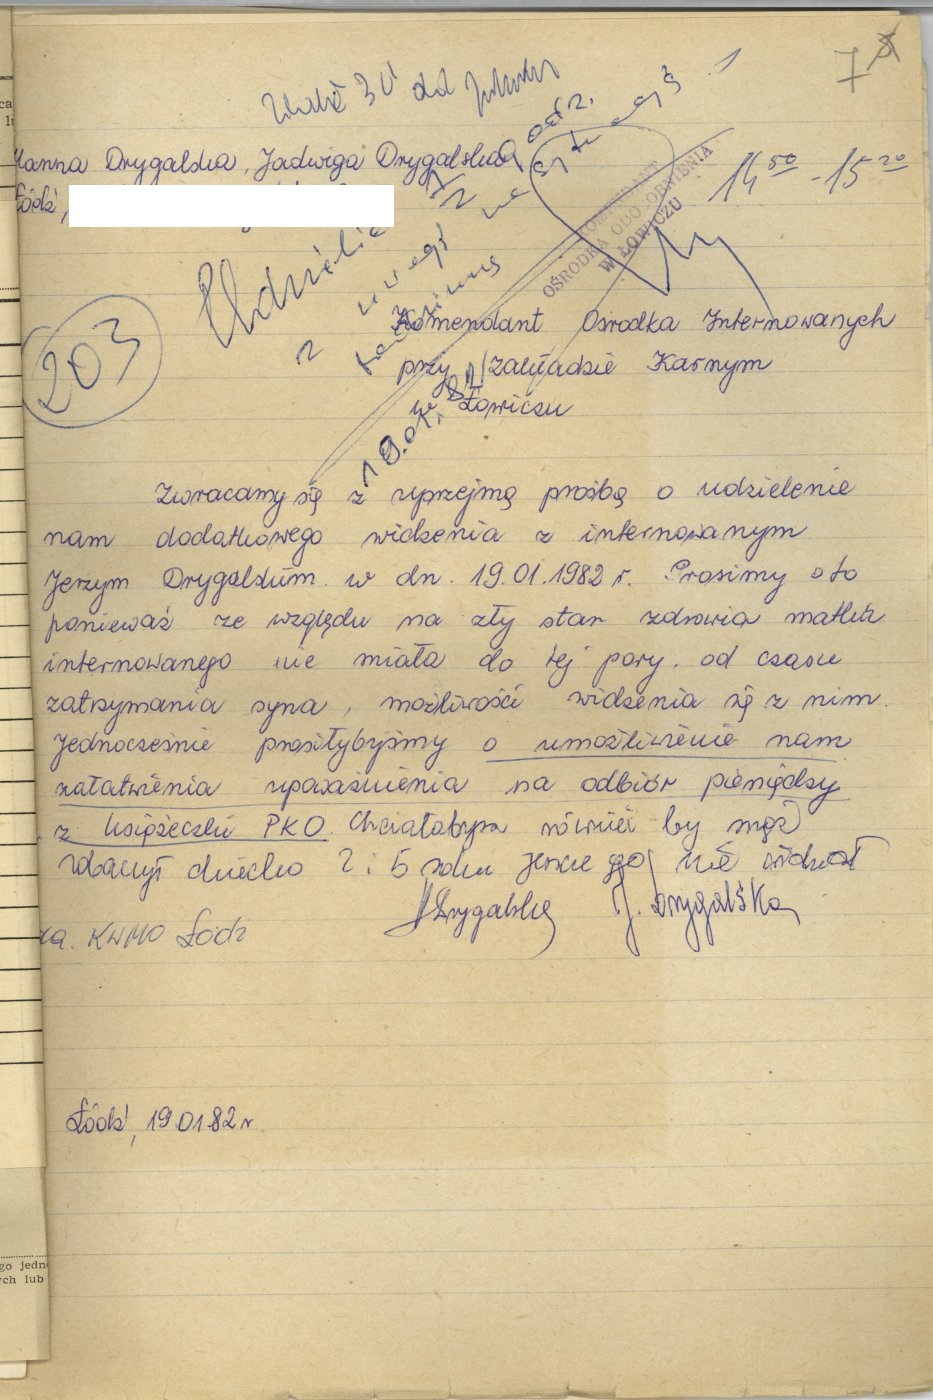 7
Hanna Drygalska, Jadwiga Drygalska
Łódź,
14 50 - 15 20
KOMENDANT
OŚRODKA ODOSOBNIENIA
W ŁOWICZU
Udzielić 1/2 godz.
z uwagi na
19.01.82
203
Komendant Ośrodka Internowanych
przy Zakładzie Karnym
w Łowiczu
Zwracamy się z uprzejmą prośbą o udzielenie
nam dodatkowego widzenia z internowanym
Jerzym Drygalskim w dn. 19.01.1982 r. Prosimy o to
ponieważ ze względu na zły stan zdrowia matka
internowanego nie miała do tej pory, od czasu
zatrzymania syna, możliwości widzenia się z nim.
Jednocześnie prosiłybyśmy o umożliwienie nam
załatwienia upoważnienia na odbiór pieniędzy
z książeczki PKO. Chciałabym również by mąż
zobaczył dziecko
HDrygalska J. Drygalska
KWMO Łódź
Łódź, 19.01.82 r.
go jedn
ych lub